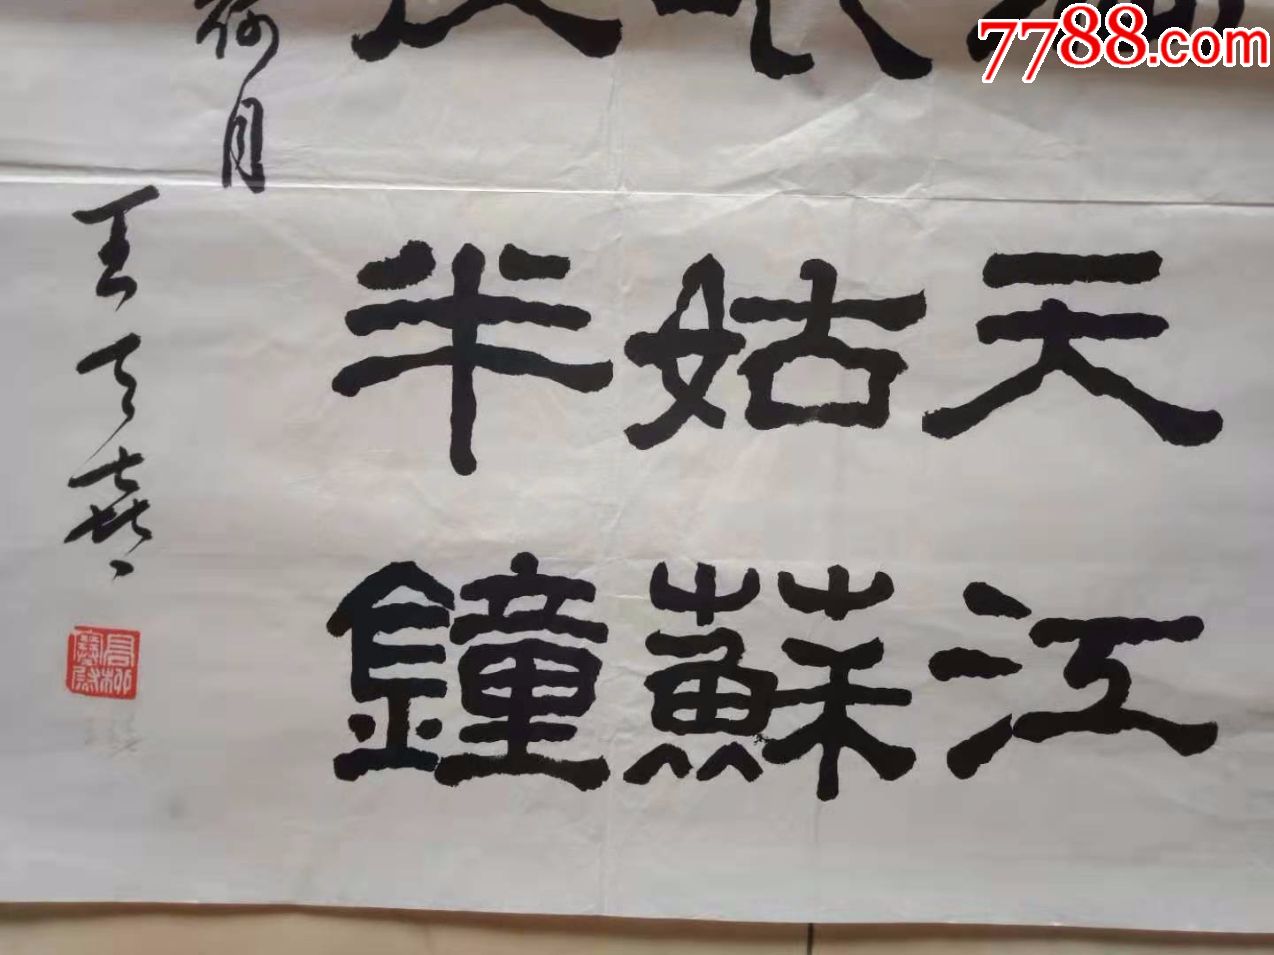 7788.com
天江
姑蘇
半鐘
荷月
王天喜